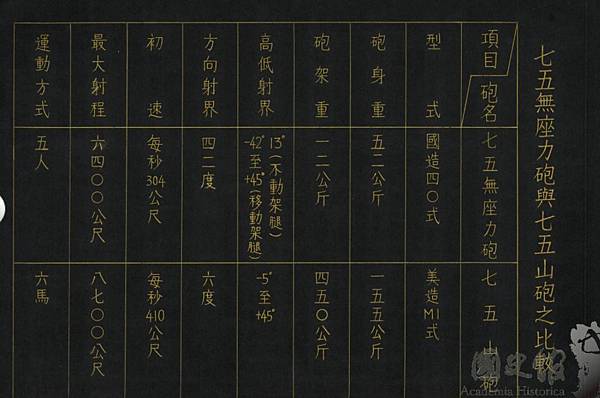 七五無座力砲與七五山砲之比較
項目
砲名
七五無座力砲
七五山砲
型式
國造四〇式
美造M1式
砲身重
五二公斤
一五五公斤
砲架重
一二公斤
四五〇公斤
高低射界
13°(不動架腿)
-42°至+45°(移動架腿)
-5°至+45°
方向射界
四二度
六度
初速
每秒304公尺
每秒410公尺
最大射程
六四〇〇公尺
八七〇〇公尺
運動方式
五人
六馬
國史館
Academia Historica